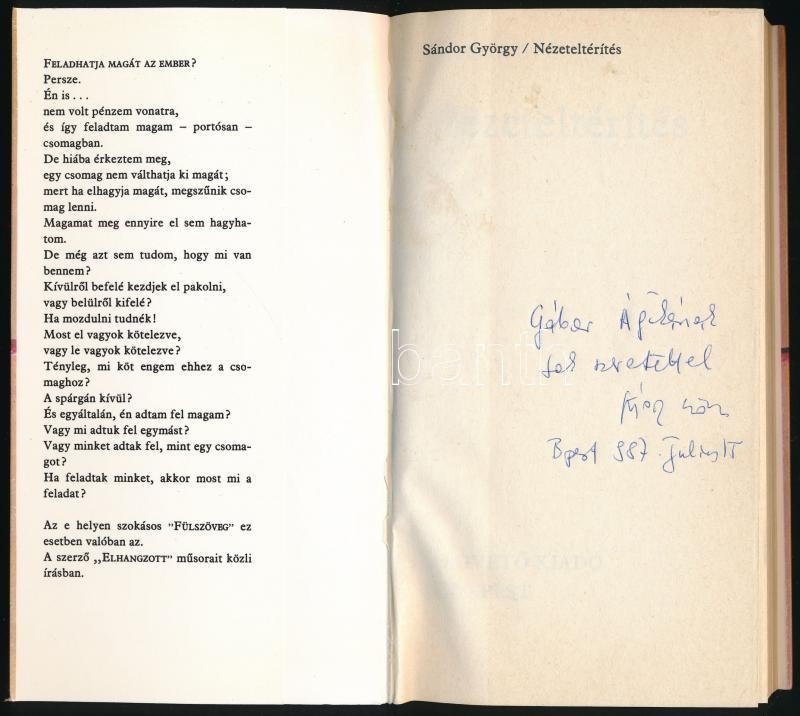 FELADHATJA MAGÁT AZ EMBER?
Persze.
Én is . . .
nem volt pénzem vonatra,
és így feladtam magam – portósan –
csomagban.
De hiába érkeztem meg,
egy csomag nem válthatja ki magát;
mert ha elhagyja magát, megszűnik cso-
mag lenni.
Magamat meg ennyire el sem hagyha-
tom.
De még azt sem tudom, hogy mi van
bennem?
Kívülről befelé kezdjek el pakolni,
vagy belülről kifelé?
Ha mozdulni tudnék!
Most el vagyok kötelezve,
vagy le vagyok kötelezve?
Tényleg, mi köt engem ehhez a cso-
maghoz?
A spárgán kívül?
És egyáltalán, én adtam fel magam?
Vagy mi adtuk fel egymást?
Vagy minket adtak fel, mint egy csoma-
got?
Ha feladtak minket, akkor most mi a
feladat?
Az e helyen szokásos "FÜLSZÖVEG" ez
esetben valóban az.
A szerző „ELHANGZOTT" műsorait közli
írásban.
Sándor György / Nézeteltérítés
Nézeteltérítés
Gábor Ágikának
sok szeretettel
Bpest 987. Julius
VETŐ KIADÓ
PEST